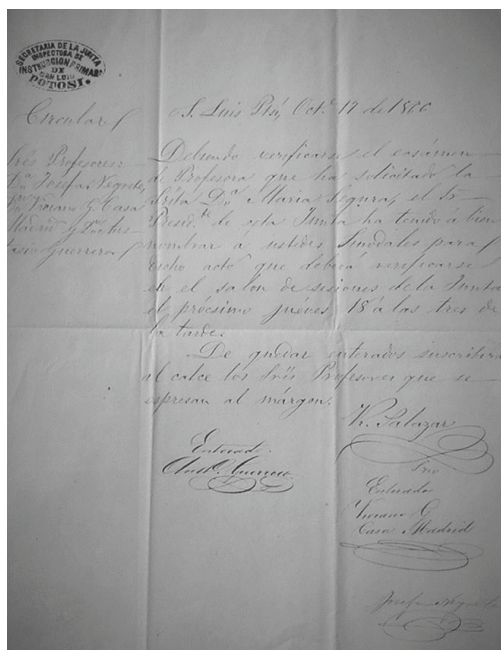 SECRETARIA DE LA JUNTA
INSPECTORA DE
INSTRUCCION PRIMARIA
DE
SAN LUIS
POTOSI.
Circular
S. Luis Psí, Octe. 17 de
Sres Profesores
Da. Josefa Negrete,
Viviano G. Casa
Madrid y
Guerrero
Debiendo verificarse el ecsámen
de Profesora que ha solicitado la
Srita Da. Maria Segura, el Sr
Presidte. de esta Junta ha tenido á bien
nombrar á ustedes Sinodales para
dicho acto que deberá verificarse
en el salon de sesiones de la Junta
el prócsimo juéves 18 á las tres de
la tarde.
De quedar enterados suscribirán
al calce los Sres Profesores que se
espresan al márgen.
R. Salazar
Srio
Enterado.
Guerrero
Enterado
Viviano G.
Casa Madrid
Josefa Negrete